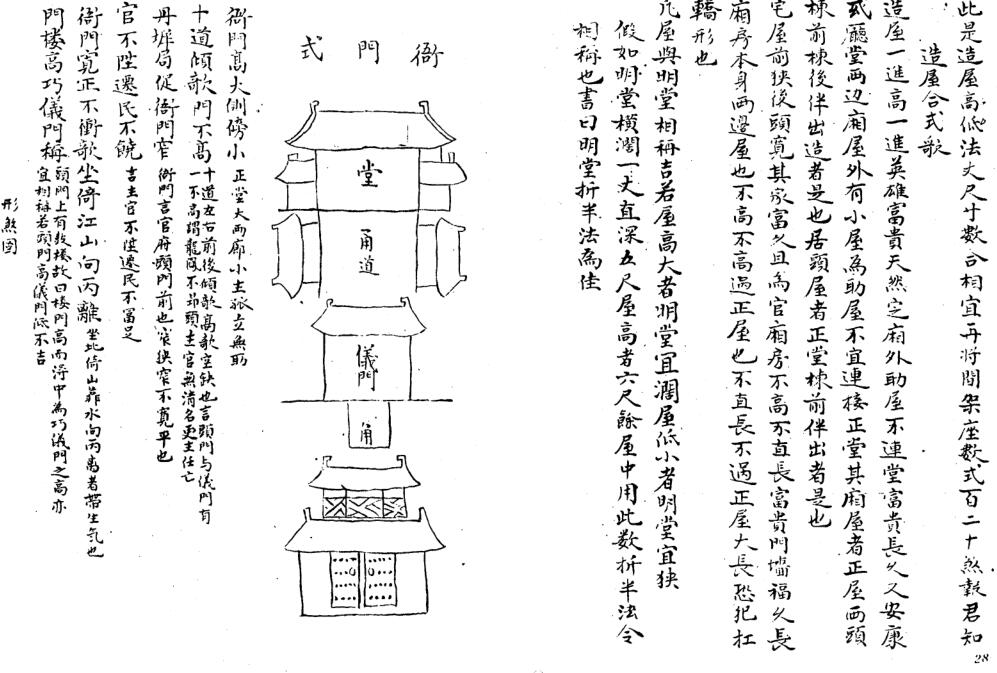 此是造屋高低法丈尺寸数合相宜再將間架座数式百二十煞數君知
造屋合式歌
造屋一進高一進英雄富貴天然定廂外助屋不連堂富貴長久又安康
或廳堂两边廂屋外有小屋為助屋不宜連接正堂其廂屋者正屋两頭
棟前棟後伴出造者是也居頭屋者正堂棟前伴出者是也
宅屋前狹後頭寬其家富久且為官廂房不高不直長富貴門墻福久長
廂房本身两邊屋也不高不高過正屋也不直長不過正屋大長恐犯扛
轎形也
凡屋與明堂相稱吉若屋高大者明堂宜濶屋低小者明堂宜狹
假如明堂橫濶一丈直深五尺屋高者六尺餘屋中用此数折半法令
相稱也書曰明堂折半法為佳
衙門式
堂
甬道
儀門
甬
衙門髙大側傍小正堂大两廊小主孤立無助
十道傾欹門不髙十道左右前後傾欹髙欹空缺也言頭門与儀門有
一不高謂龍、不昂頭主官無清名更主仕亡
丹墀局促衙門窄衙門言官府頭門前也窄狹窄不寬平也
官不陞遷民不饒言主官不陞遷民不富足
衙門寬正不衝欹坐倚江山向丙離坐北倚山靠水向丙离者帶生気也
門楼高巧儀門稱頭門上有敎楼故曰楼門高而淂中為巧儀門之高亦
宜相稱若頭門高儀門低不吉
形煞圖
28